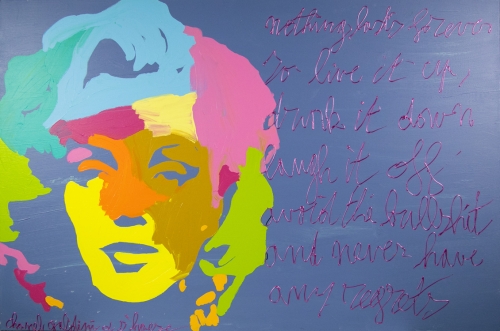 nothing lasts forever
so live it up,
drink it down
laugh it off
avoid the bullshit
and never have
any regrets